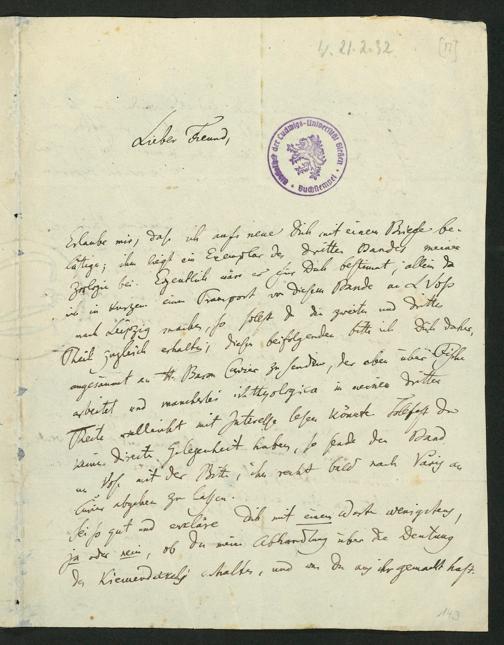 V. 21.2.32
[17]
Lieber Freund,
Bibliothek der Ludwigs-Universität Gießen. Buchstempel
Erlaube mir, daß ich aufs neue Dich mit einem Briefe be-
lästige; ihm liegt ein Exemplar des dritten Bandes meiner
Zoologie bei. Eigentlich wäre er für Dich bestimmt; allein da
ich in Kurzem einen Transport von diesem Bande an L Voss
nach Leipzig mache, so sollst du die zweiten und dritten
Theil zugleich erhalten; diesen beifolgenden bitte ich Dich daher,
ungesäumt an H. Baron Cuvier zu senden, der eben über Fische
arbeitet und mancherlei ichthyologica in meinem dritten
Theile vielleicht mit Interesse lesen könnte. Solltest du
keine directe Gelegenheit haben, so sende den Band
an Voss mit der Bitte, ihn recht bald nach Paris an
Cuvier abgehen zu lassen.
Sei so gut und erkläre Dich mit einem Wort wenigstens,
ja oder nein, ob Du meine Abhandlung über die Deutung
des Kiemendeckels erhalten, und was Du aus ihr gemacht hast.
149